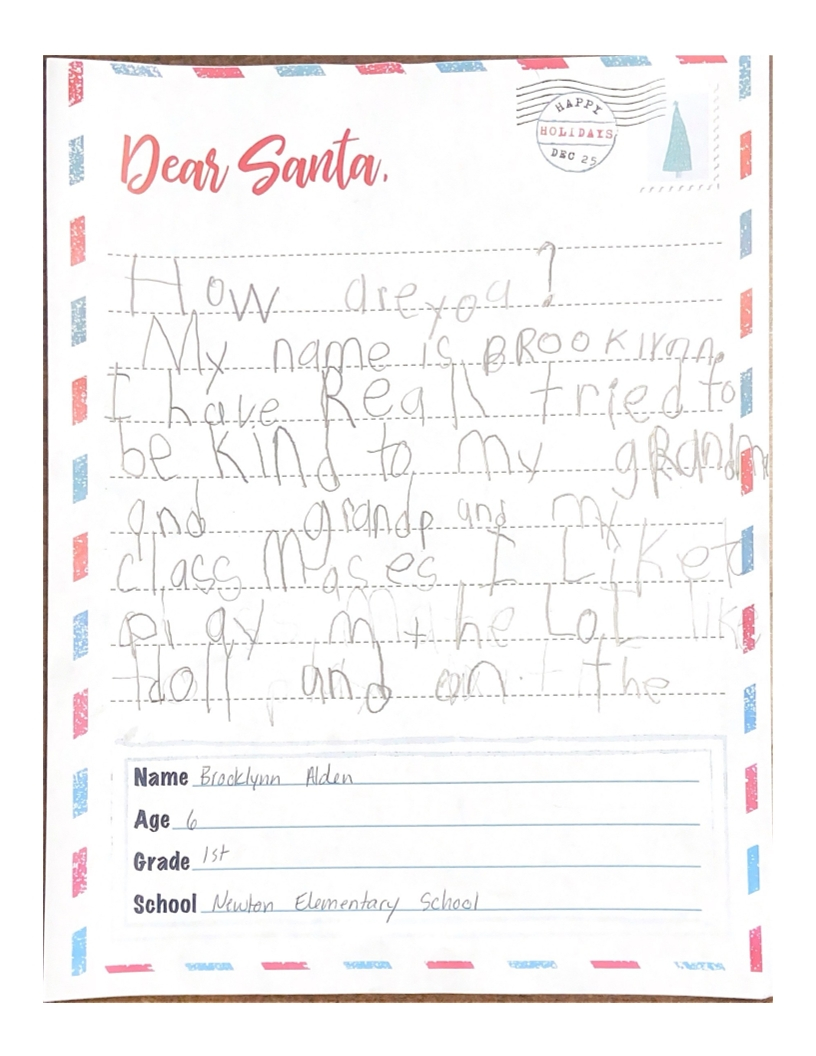 HAPPY
HOLIDAYS
DEC 25
Dear Santa,
How are you?
My name is BROOKlynn.
I have Reall tried to
be kind to my gRandm
and grandp and my
class Mases. I Liket
play m the LoL like
doll and on the
Name Brooklynn Alden
Age 6
Grade 1st
School Newton Elementary School